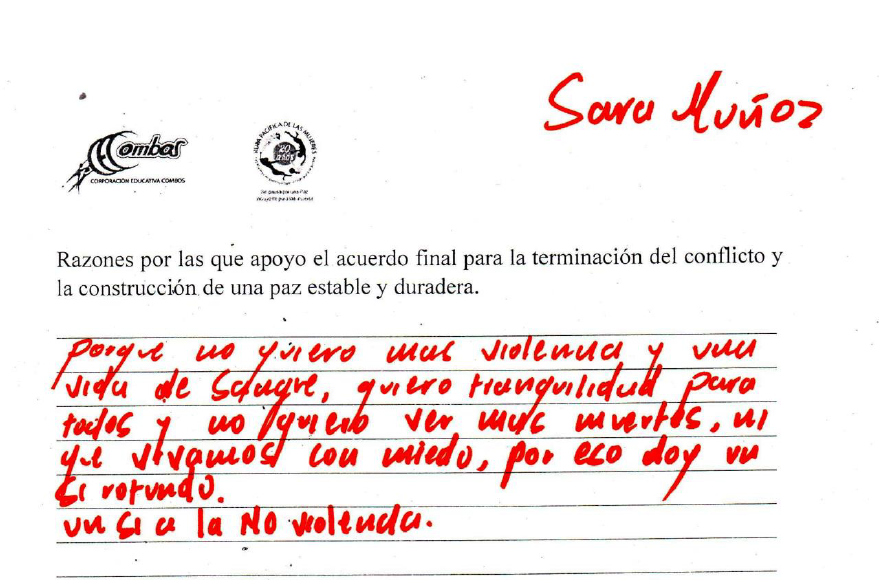 Sara Muñoz
Combos
CORPORACIÓN EDUCATIVA COMBOS
PACÍFICA DE LAS MUJERES
20 años
Razones por las que apoyo el acuerdo final para la terminación del conflicto y
la construcción de una paz estable y duradera.
porque no quiero mas violencia y una
vida de sangre, quiero tranquilidad para
todos y no quiero ver mas muertos, ni
que vivamos con miedo, por eso doy un
si rotundo.
un si a la NO violencia.